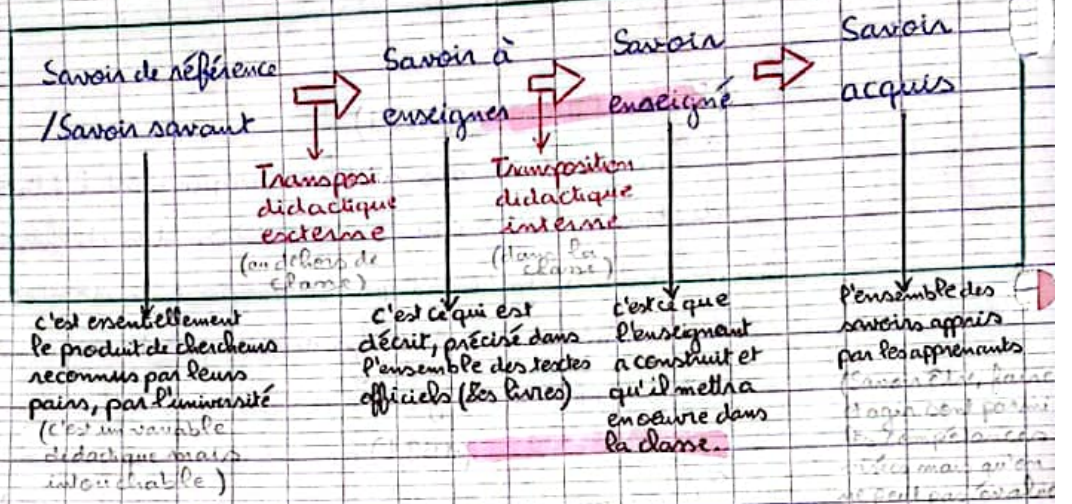 Savoir de référence
/Savoir savant
Savoir à
enseigner
Savoir
enseigné
Savoir
acquis
Transposi
didactique
externe
(en dehors de
classe)
Transposition
didactique
interne
(dans la
classe)
c'est essentiellement
le produit de chercheurs
reconnus par leurs
pairs, par l'université
(c'est un variable
didactique mais
intouchable)
c'est ce qui est
décrit, précisé dans
l'ensemble des textes
officiels (Les livres)
c'est ce que
l'enseignant
a construit et
qu'il mettra
en oeuvre dans
la classe.
l'ensemble des
savoirs appris
par les apprenants